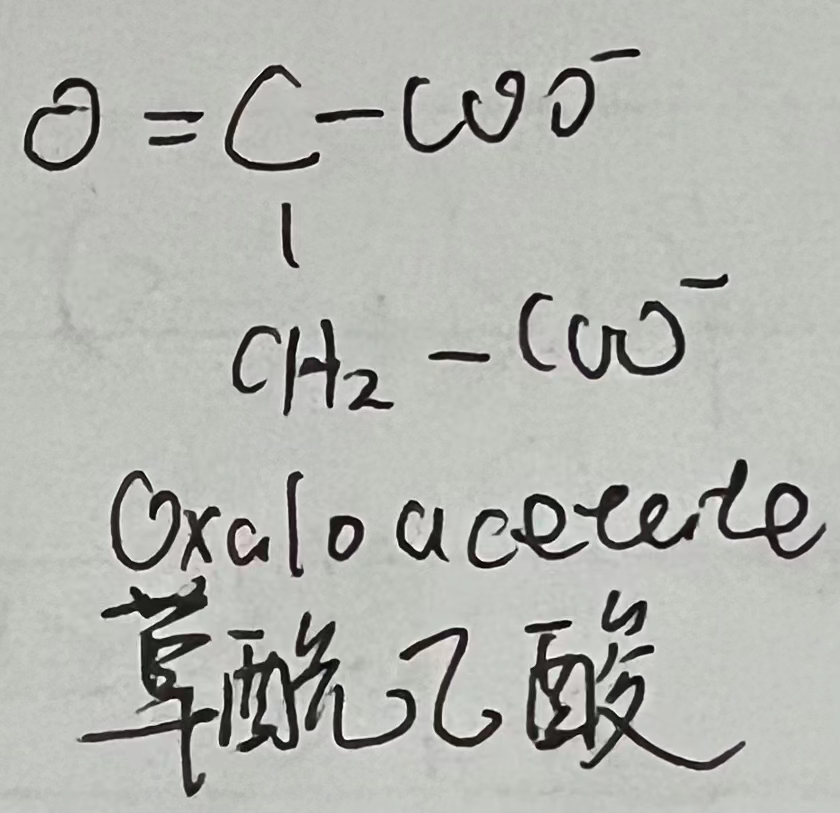 O=C-COO⁻
|
CH₂-COO⁻
Oxaloacetate
草酰乙酸